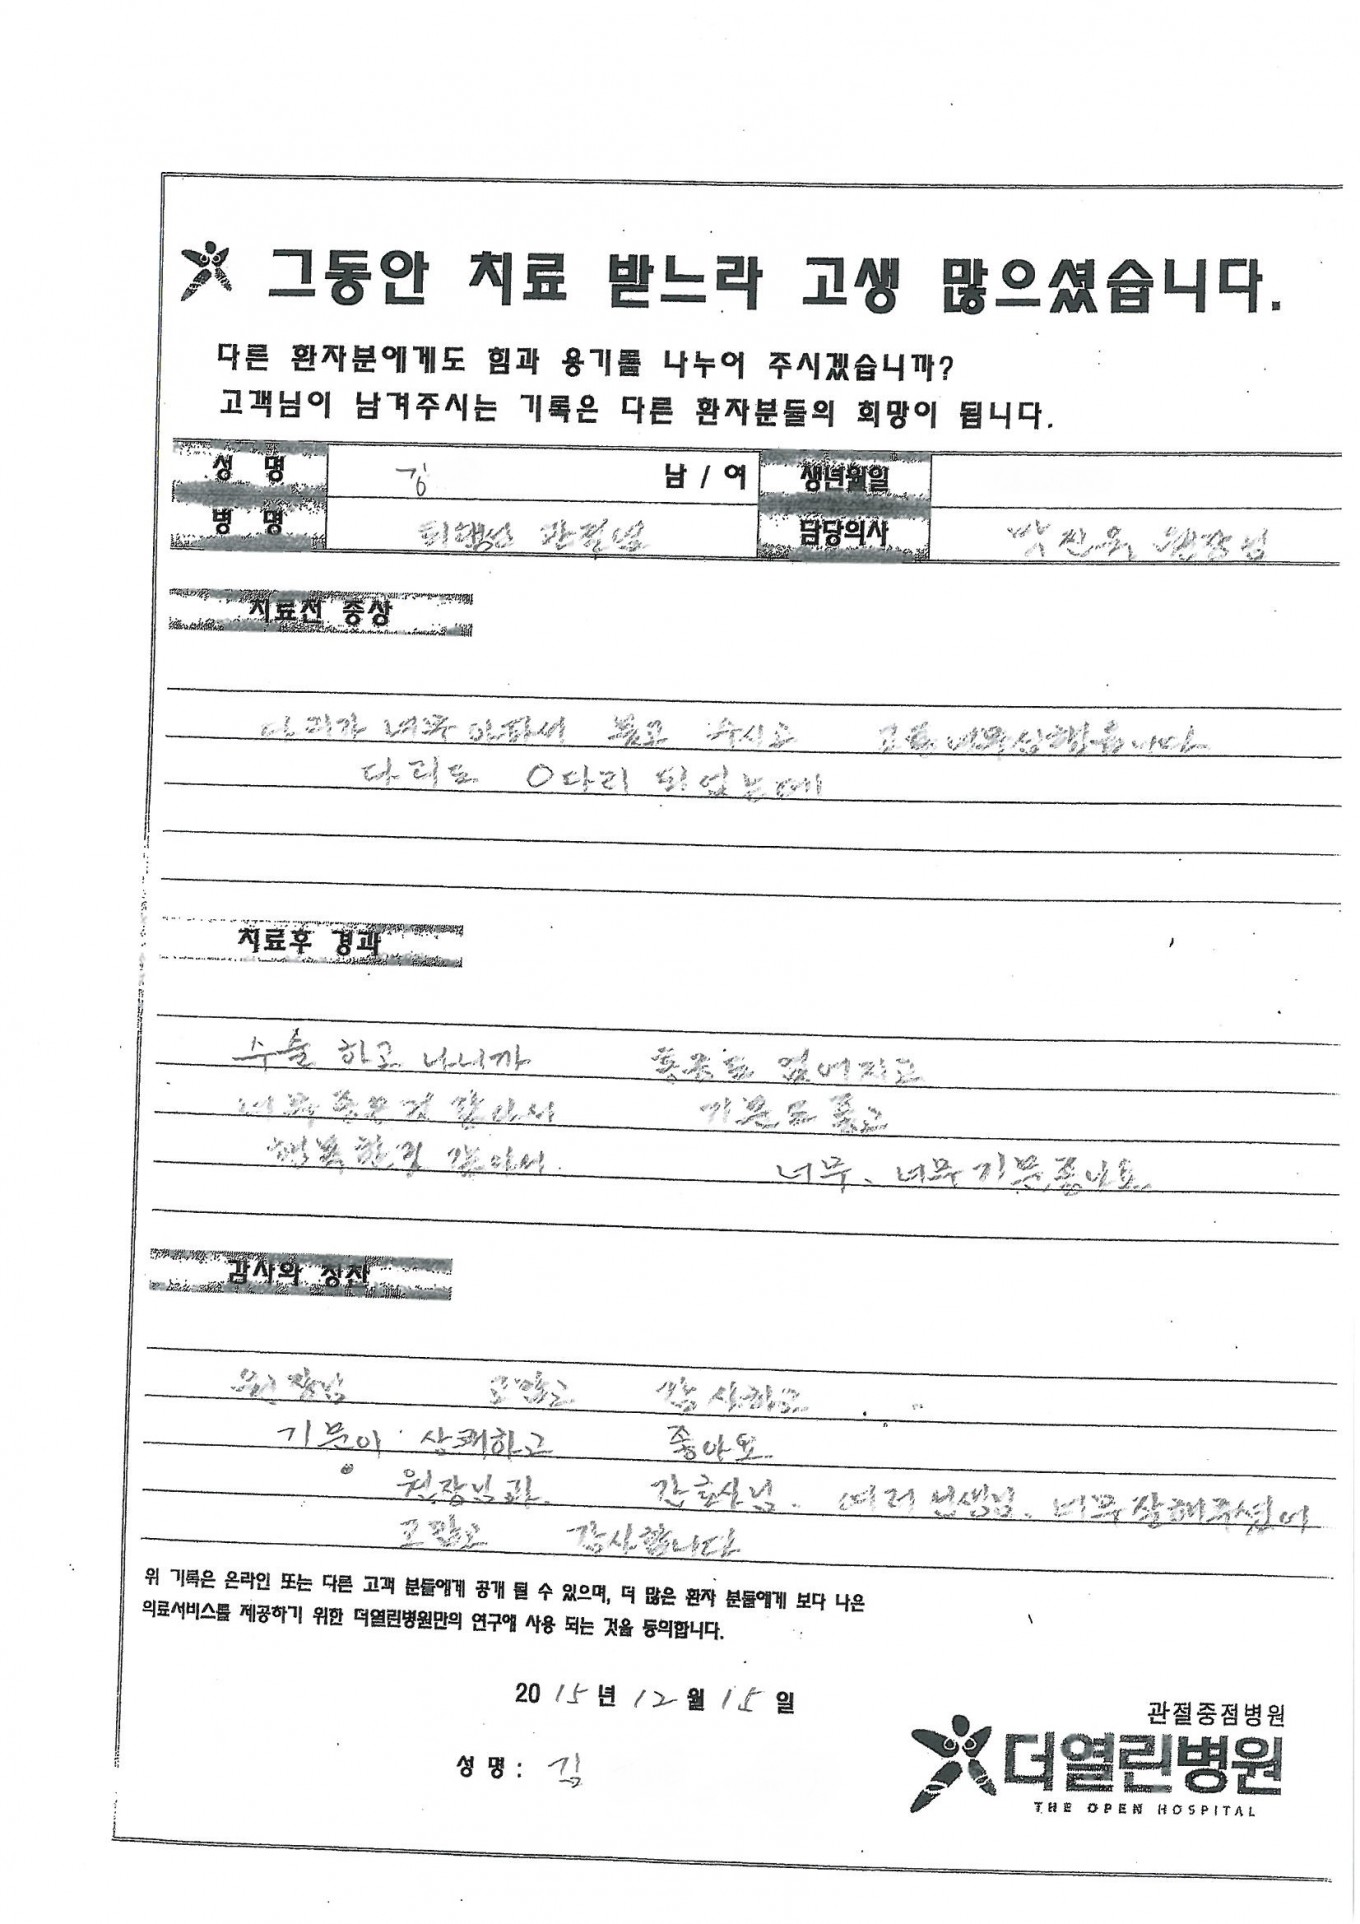 그동안 치료 받느라 고생 많으셨습니다.
다른 환자분에게도 힘과 용기를 나누어 주시겠습니까?
고객님이 남겨주시는 기록은 다른 환자분들의 희망이 됩니다.
성 명 김 남 / 여 생년월일
병 명 퇴행성 관절념 담당의사 원장님
치료전 증상
다리가 너무 아파서 붓고 쑤시고
다리도 O다리 되었는데
치료후 경과
수술 하고 나니까 통증도 없어지고
너무 좋은것 같아서 기분도 좋고
행복한것 같아서. 너무, 너무 기분좋아요.
감사와 칭찬
원장님 고맙고 감사하고
기분이 상쾌하고 좋아요
원장님과. 간호사님. 여러 선생님. 너무 잘해주셨어
고맙고 감사합니다
위 기록은 온라인 또는 다른 고객 분들에게 공개 될 수 있으며, 더 많은 환자 분들에게 보다 나은
의료서비스를 제공하기 위한 더열린병원만의 연구에 사용 되는 것을 동의합니다.
2015년 12월 15일
성 명 : 김
관절중점병원
더열린병원
THE OPEN HOSPITAL